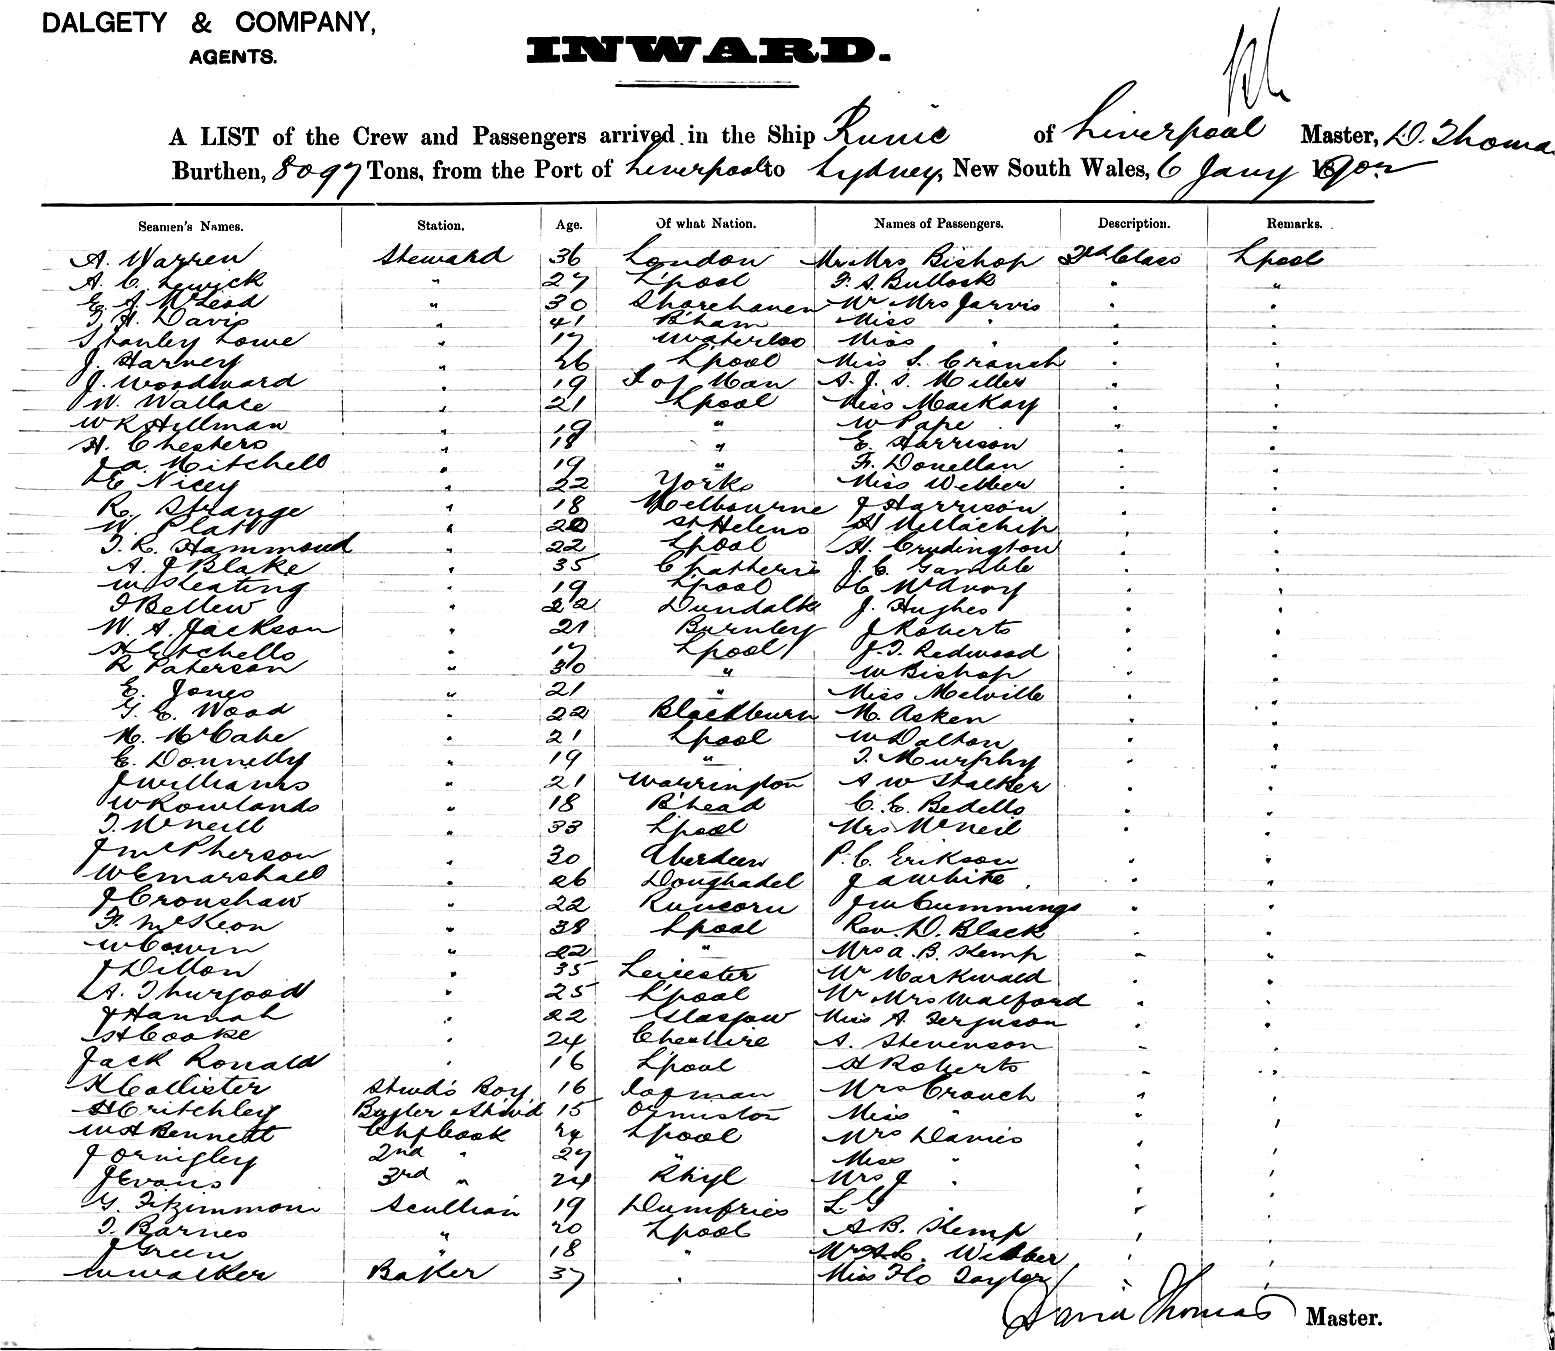 DALGETY & COMPANY,
AGENTS.
INWARD.
A LIST of the Crew and Passengers arrived in the Ship Runic of Liverpool Master, D. Thomas
Burthen, 8097 Tons, from the Port of Liverpool to Sydney, New South Wales, 6 Jany 1902
Seamen's Names. Station. Age. Of what Nation. Names of Passengers. Description. Remarks.
A. Warren Steward 36 London Mr Mrs Bishop 3rd Class Lpool
A. C. Lewick " 27 L'pool F. S. Bullock " "
E. A. McLeod " 30 Shorehaven Mr Mrs Jarvis " "
T. H. Davis " 41 B'ham Miss " " "
Stanley Lowe " 17 Waterloo Miss " " "
J. Harney " 26 Lpool Miss L. Cranch " "
J. Woodward " 19 I of Man A. J. S. Miller " "
W. Wallace " 21 Lpool Miss MacKay " "
W R Hillman " 19 " W Pape " "
H. Chesters " 18 " E. Harrison " "
J. A. Mitchell " 19 " F. Donellan " "
E Nicey " 22 Yorks Miss Webber " "
R. Strange " 18 Melbourne J Harrison " "
W. Platt " 20 St Helens " "
T. R. Hammond " 22 Lpool H. Crudington " "
A. J Blake " 35 J. C. Gamble " "
W Keating " 19 Lpool C McAvoy " "
T Bellew " 22 Dundalk J. Hughes " "
W. A. Jackson " 21 Burnley J Roberts " "
" 17 Lpool J. T. Redwood " "
R Paterson " 30 " W Bishop " "
E. Jones " 21 " Miss Melville " "
G. E. Wood " 22 Blackburn M. Asken " "
M. McCabe " 21 Lpool W Dalton " "
E. Donnelly " 19 " T. Murphy " "
J Williams " 21 Warrington A W Stalker " "
W Rowlands " 18 B'head C. C. Bedells " "
T. McNeill " 33 Lpool Mrs McNeil " "
J McPherson " 30 Aberdeen P. C. Erikson " "
W E Marshall " 26 Doughadel J A White " "
J Cronshaw " 22 Runcorn J W Cummings " "
F. McKeon " 38 Lpool Rev. D. Black " "
W Cowin " 22 " Mrs A. B. Kemp " "
J Dillon " 35 Leicester Mr Markwald " "
A. Thurgood " 25 L'pool Mr Mrs Walford " "
J Hannah " 22 Glasgow Miss A. Ferguson " "
H Cooke " 24 Cheshire A. Stevenson " "
Jack Ronald " 16 L'pool A Roberts " "
H Collister Stwd's Boy 16 Mrs Crouch " "
H Critchley Bugler & Stwd 15 Ormiston Miss " " "
W H Bennett Ch Cook 24 Lpool Mrs Davies " "
J Ornigley 2nd " 27 " Miss " " "
J Evans 3rd " 24 Rhyl Mrs J " " "
G. Fitzimmon Scullian 19 Dumfries L G " " "
T. Barnes " 20 Lpool A B. Kemp " "
J Green " 18 " Webber " "
W Walker Baker 37 " Miss Flo Taylor " "
David Thomas Master.